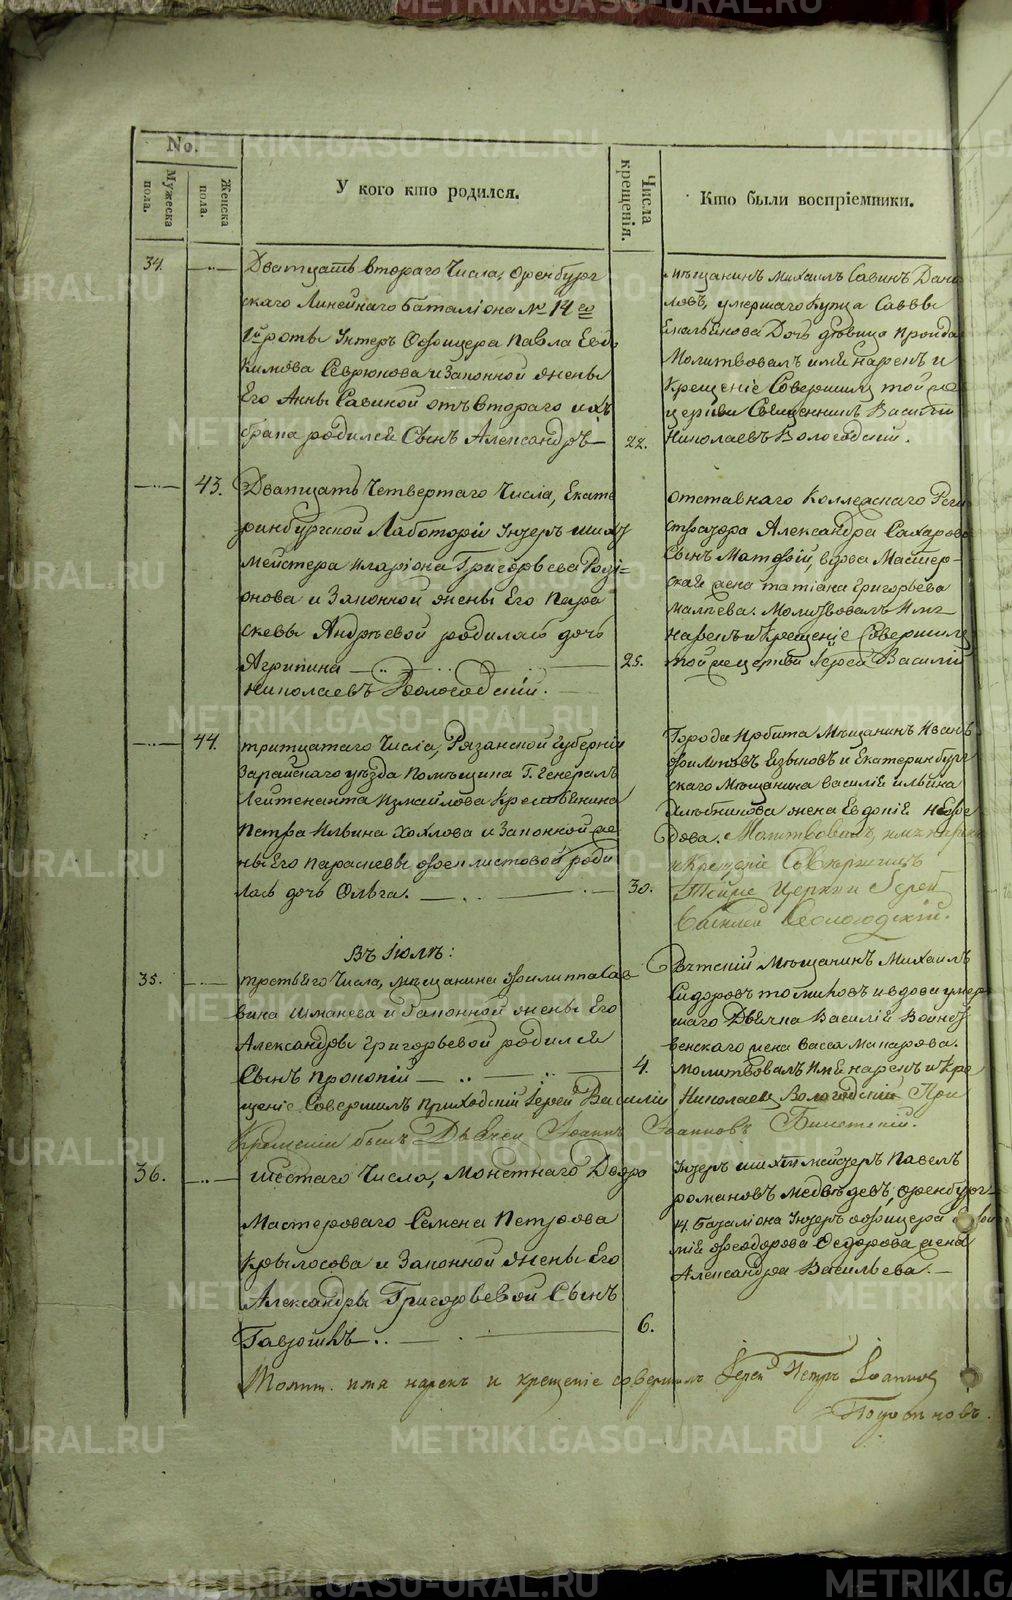 No.
Мужеска пола.
Женска пола.
У кого кто родился.
Числа крещенія.
Кто были воспріемники.
34.
Дватцать втораго Числа, Оренбург
скаго Линейнаго Баталіона № 14го
1й роты Унтеръ Офицера Павла Евдо
кимова Севрюкова и Законной жены
Его Анны Савиной отъ втораго ихъ
брака родился Сынъ Александръ
22.
Мѣщанинъ Михаилъ Савинъ Дани
ловъ, умершаго Купца Саввы
Дочь дѣвица
Молитвовалъ имя нарекъ и
Крещеніе Совершилъ той же
церкви Священникъ Василій
Николаевъ Вологодскій.
43.
Дватцать Четвертаго Числа, Екате
ринбургской Лаботоріи Унтеръ шихт
мейстера Иларіона Григорьева Роді-
онова и Законной жены Его Пара
скевы Андрѣевой родилась дочь
Агрипина
25.
Николаевъ Вологодскій.
Отставнаго Коллежскаго Реги
стратора Александра Сахарова
Сынъ Матфій, вдова Мастер-
ская жена татіана Григорьева
Молитвовалъ Имя
нарекъ и Крещеніе Совершилъ
той же церкви Іерей Василій
44.
тритцатаго Числа, Рязанской Губерніи
Зарайскаго уѣзда Помѣщика Г. Генералъ
Лейтенанта Измайлова Крестьянина
Петра Ильина Хохлова и Законной же
ны Его Параскевы Феклистовой роди
лась дочь Ольга.
30.
Города Ирбита Мѣщанинъ Иванъ
Филиповъ Языковъ и Екатеринбург
скаго Мѣщанина Василія Ильина
Хлѣбникова жена Евдокія
Молитвовалъ, имя нарекъ
и Крещеніе Совершилъ
Тойже Церкви Іерей
Василій Вологодскій.
Въ Іюлѣ:
35.
третьяго Числа, Мѣщанина Филиппа Сав
вина Шмакова и Законной жены Его
Александры Григорьевой родился
Сынъ Прокопій
4.
Вятскій Мѣщанинъ Михаилъ
Сидоровъ и вдова умер
шаго Дьячка Василія Возне
сенскаго жена Васса Макарова.
Молитвовалъ Имя нарекъ и Кре
щеніе Совершилъ Приходскій Іерей Василій Николаевъ Вологодскій При
Крещеніи былъ Дьячекъ Іоаннъ Іоанновъ
36.
Шестаго Числа, Монетнаго Двора
Мастероваго Семена Петрова
Крылосова и Законной жены Его
Александры Григорьевой Сынъ
Гавріилъ.
6.
Унтеръ шихтмейстеръ Павелъ
романовъ Медвѣдевъ, Оренбург-
14. Баталіона Унтеръ Офицера
Феодорова жена
Александра Васильева.
Молит. имя нарекъ и крещеніе совершилъ Іерей Петръ Іоанновъ